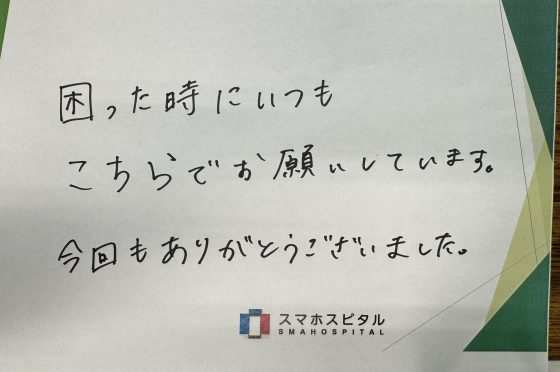 困った時にいつも
こちらでお願いしています。
今回もありがとうございました。
スマホスピタル
SMAHOSPITAL